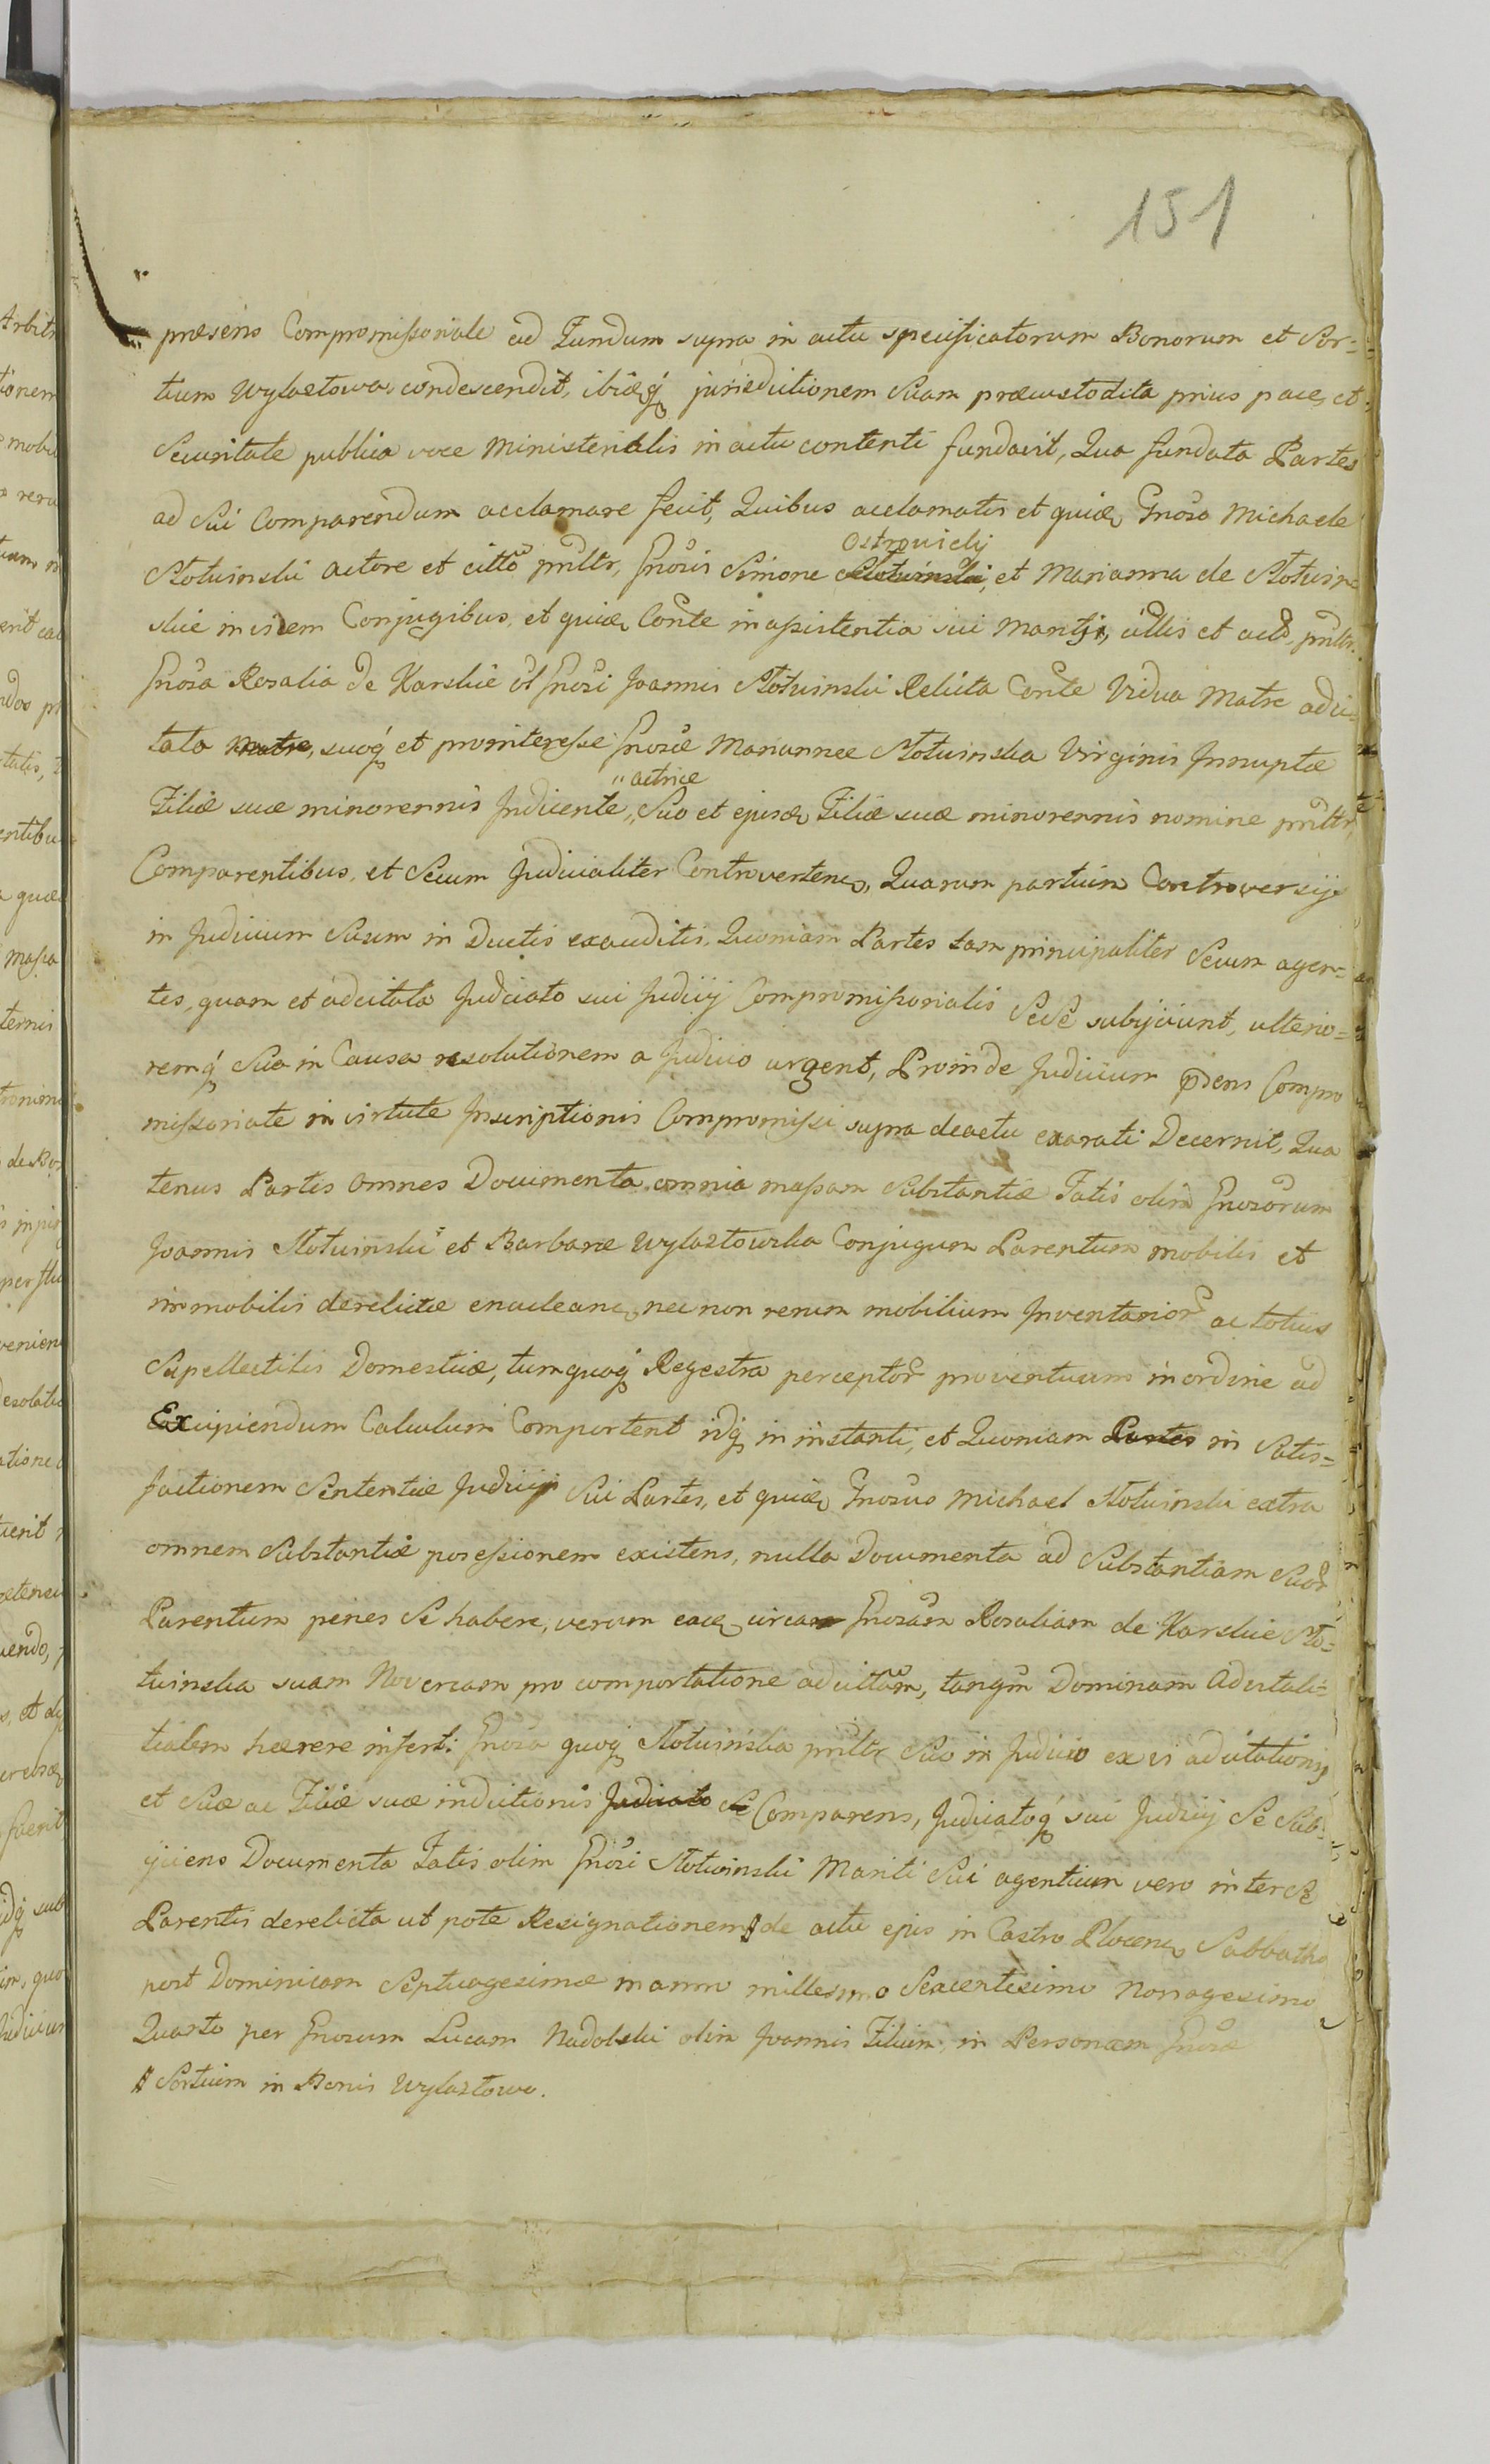 151
præsens Compromissoriale ad Fundum supra in actu specificatorum Bonorum et Sor=
tium Wylaztowa condescendit, ibiq́ jurisdictionem Suam præcustodita prius pace, et
Securitate publica voce Ministerialis in actu contenti fundavit, Qua fundata Partes
ad Sui Comparendum acclamare fecit, Quibus acclamatis et quidē Gnoso Michaele
Ostrowidzy
Słotwinski actore et citto pnltr, Gnosis Simone Słotwinski, et Marianna de Słotwin
skie in idem Conjugibus, et quidē Conte in assistentia sui Mariti, cittis et actō, pnltr.
Gnosa Rosalia de Karskie ol Gnosi Joannis Słotwinski Relicta Conte Vidua Matre adci=
tata Matre, suoq́ et prointeresse Gnosæ Mariannæ Słotwinska Virginis Innuptæ
" actrice
Filiæ suæ minorennis Indicente " Suo et ejusdē Filiæ suæ minorennis nomine pnltr,
Comparentibus, et Secum Judicialiter Controverten, Quarum partium Controversijs
in Judicium Suum in Ductis exauditis, Quoniam Partes tam principaliter Secum agen=
tes, quam et adcitata Judicato sui Judicij Compromissorialis Sese subijciunt, ulterio=
remq́ Sua in Causa resolutionem a Judicio urgent, Proinde Judicium pdens Compro
missoriale in virtute Inscriptionis Compromissi supra de actu exarati Decernit, Qua
tenus Partes omnes Documenta omnia massam Substantiæ Fatis olim Gnosorum
Joannis Słotwinski et Barbaræ Wylaztowska Conjugum Parentum mobilis et
immobilis derelictæ enuclean, nec non rerum mobilium Inventarior ac totius
Supellectilis Domesticæ, tum quoq́ Regestra perceptor proventuum in ordine ad
Excipiendum Calculum Comportent idq́ in instanti, et Quoniam Partes in Satis=
factionem Sententiæ Judicij Sui Partes, et quidē Gnosus Michael Słotwinski extra
omnem Substantiæ possessionem existens, nulla Documenta ad Substantiam Suor
Parentum penes Se habere, verum eadē circa Gnosam Rosaliam de Karskie Sło=
twinska suam Novercam pro comportatione adcittam, tanqm Dominam Advitali=
tialem hærere infert: Gnosa quoq́ Słotwinska pnltr Suo in Judicio ex vi adcitationis
et Suæ ac Filiæ suæ indictionis Judicato Se Comparens, Judicatoq́ sui Judicij Se Sub=
ijciens Documenta Fatis olim Gnosi Słotwinski Mariti Sui agentium vero inter Se
Parentis derelicta ut pote Resignationem de actu ejus in Castro Plocen Sabbatho
post Dominicam Septuagesimæ in anno millesimo Sexcentesimo Nonagesimo
Quarto per Gnosum Lucam Nadolski olim Joannis Filium in Personam Gnosæ
Sortium in Bonis Wylaztowo.